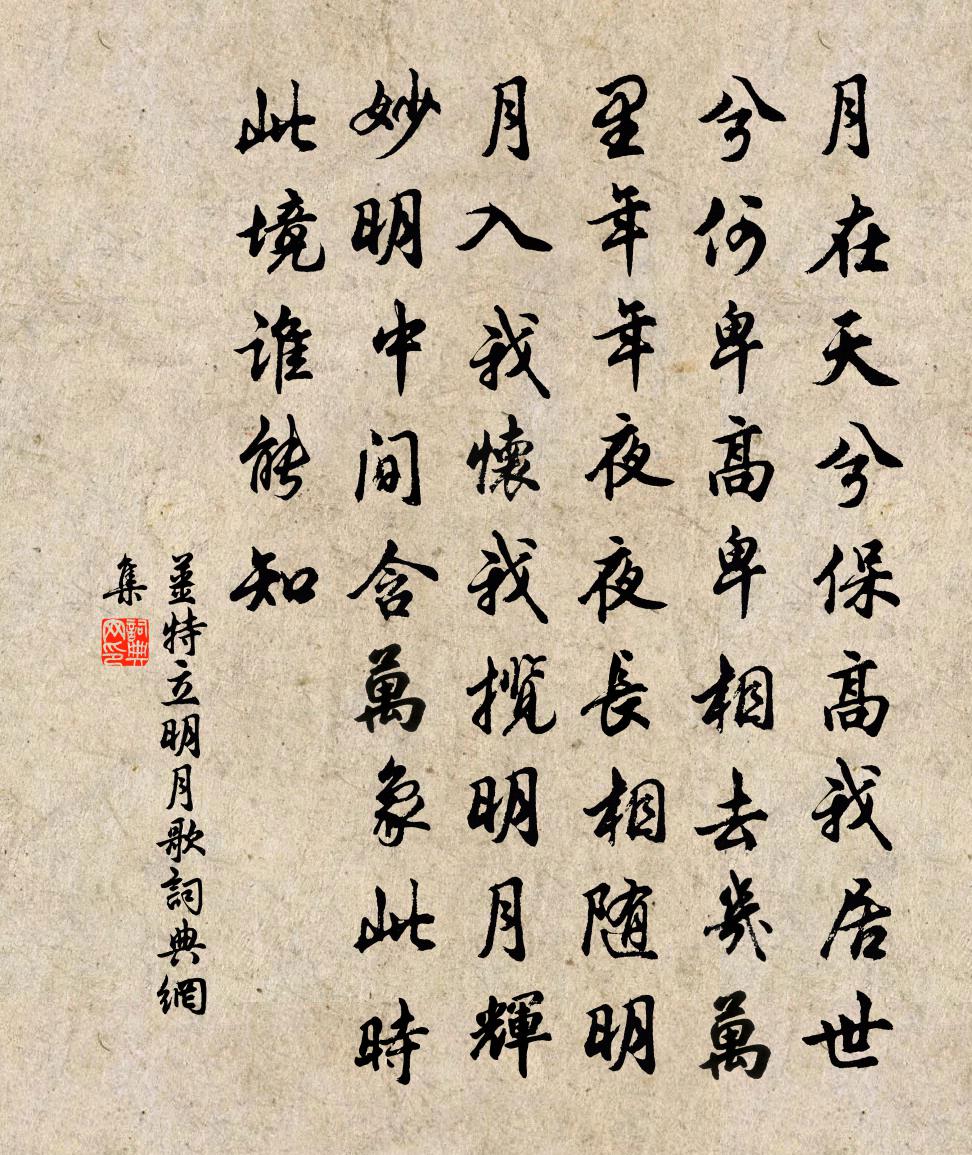 月在天兮保高我居世
兮何卑高卑相去幾萬
里年年夜夜長相随明
月入我懷我攬明月輝
妙明中间含萬象此時
此境谁能知
姜特立明月歌詞典網
集
詞典
网印